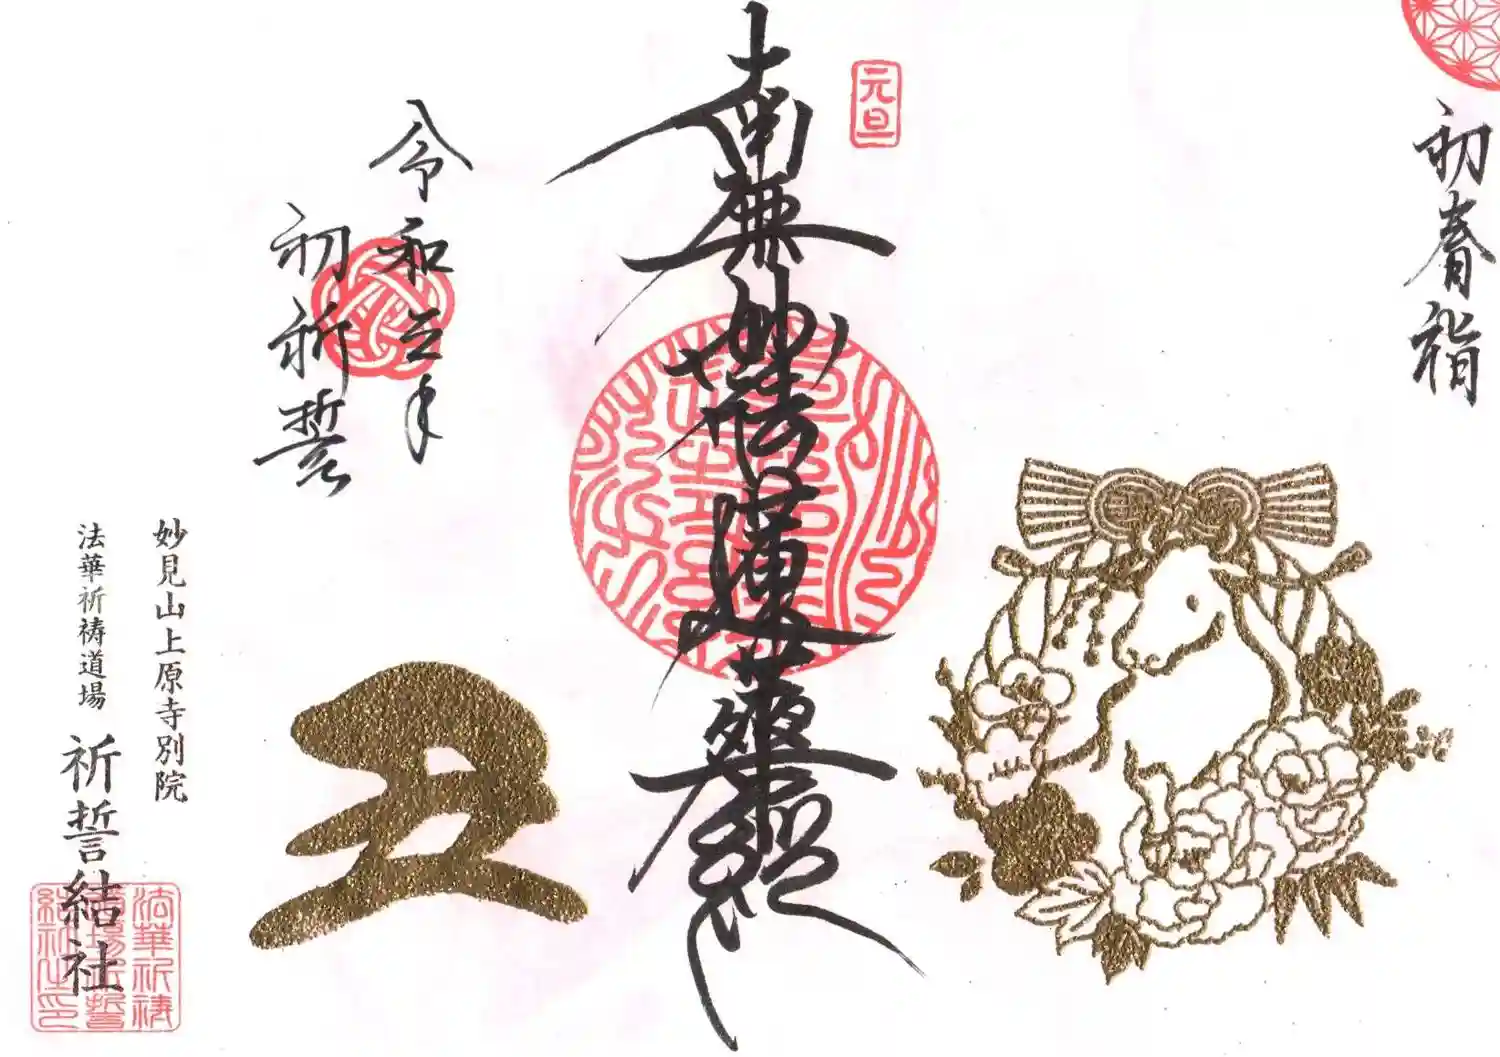 初春詣
元旦
南無妙法蓮華経
令和三年
初祈誓
丑
妙見山上原寺別院
法華祈祷道場
祈誓結社
法華祈祷
道場祈誓
結社之印